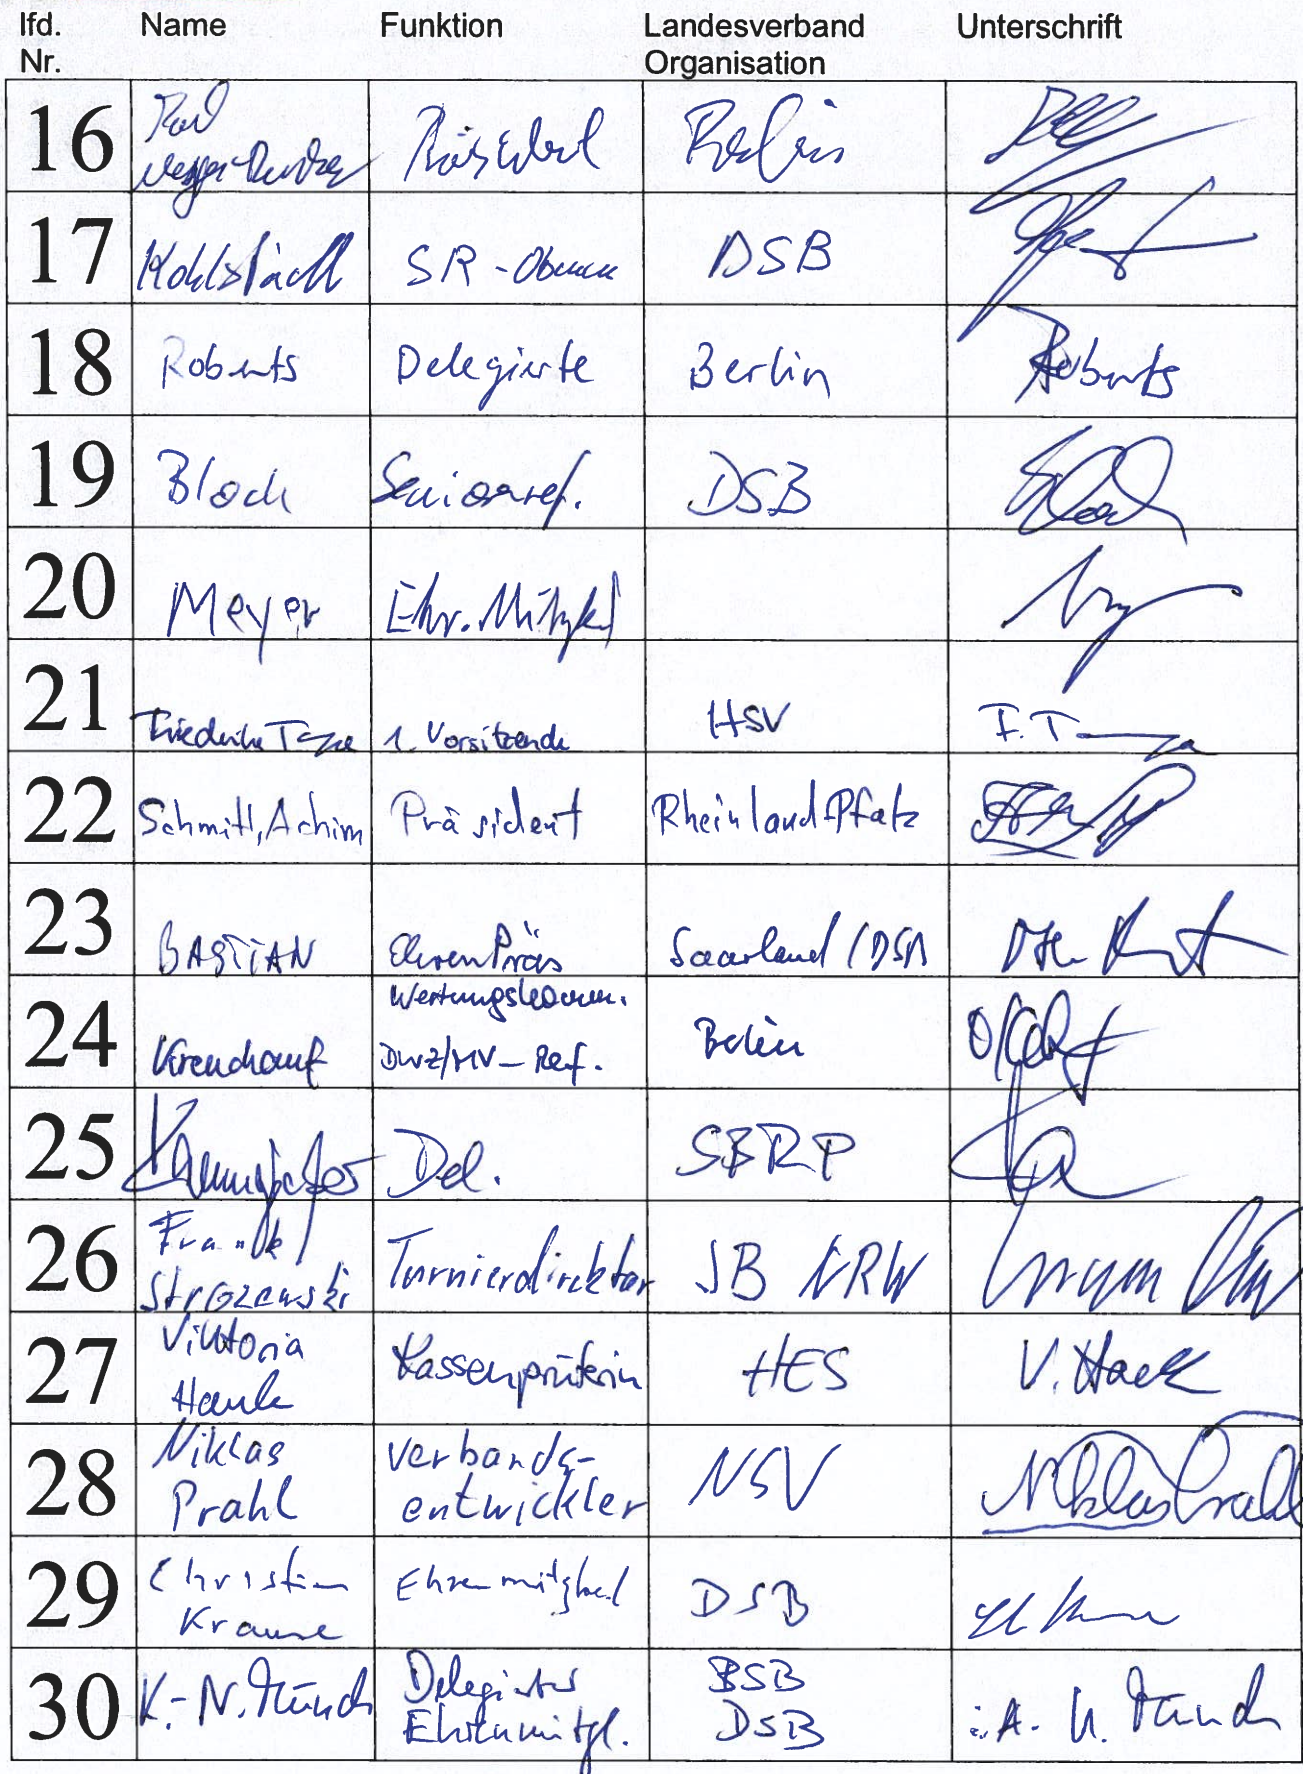 lfd. Name Funktion Landesverband Unterschrift
Nr. Organisation
16 Präsident Berlin
17 Kohlstädt SR-Obmann DSB
18 Roberts Delegierte Berlin Roberts
19 Bloch Seniorenref. DSB
20 Meyer Ehr.Mitgl
21 Friederike T 1. Vorsitzende HSV F.T
22 Schmitt, Achim Präsident Rheinland-Pfalz
23 BASTIAN EhrenPräs Saarland / DSB
24 Wertungskomm.
DWZ/MV-Ref. Berlin
25 Del. SBRP
26 Frank
Strozewski Turnierdirektor SB NRW
27 Viktoria
Hauk Kassenprüferin HES V. Hack
28 Niklas Verbands-
Prahl entwickler NSV Niklas Prahl
29 Christian Ehrenmitglied DSB
Krause
30 K.-N. Münch Delegierter BSB
Ehrenmitgl. DSB i.A. K. Münch